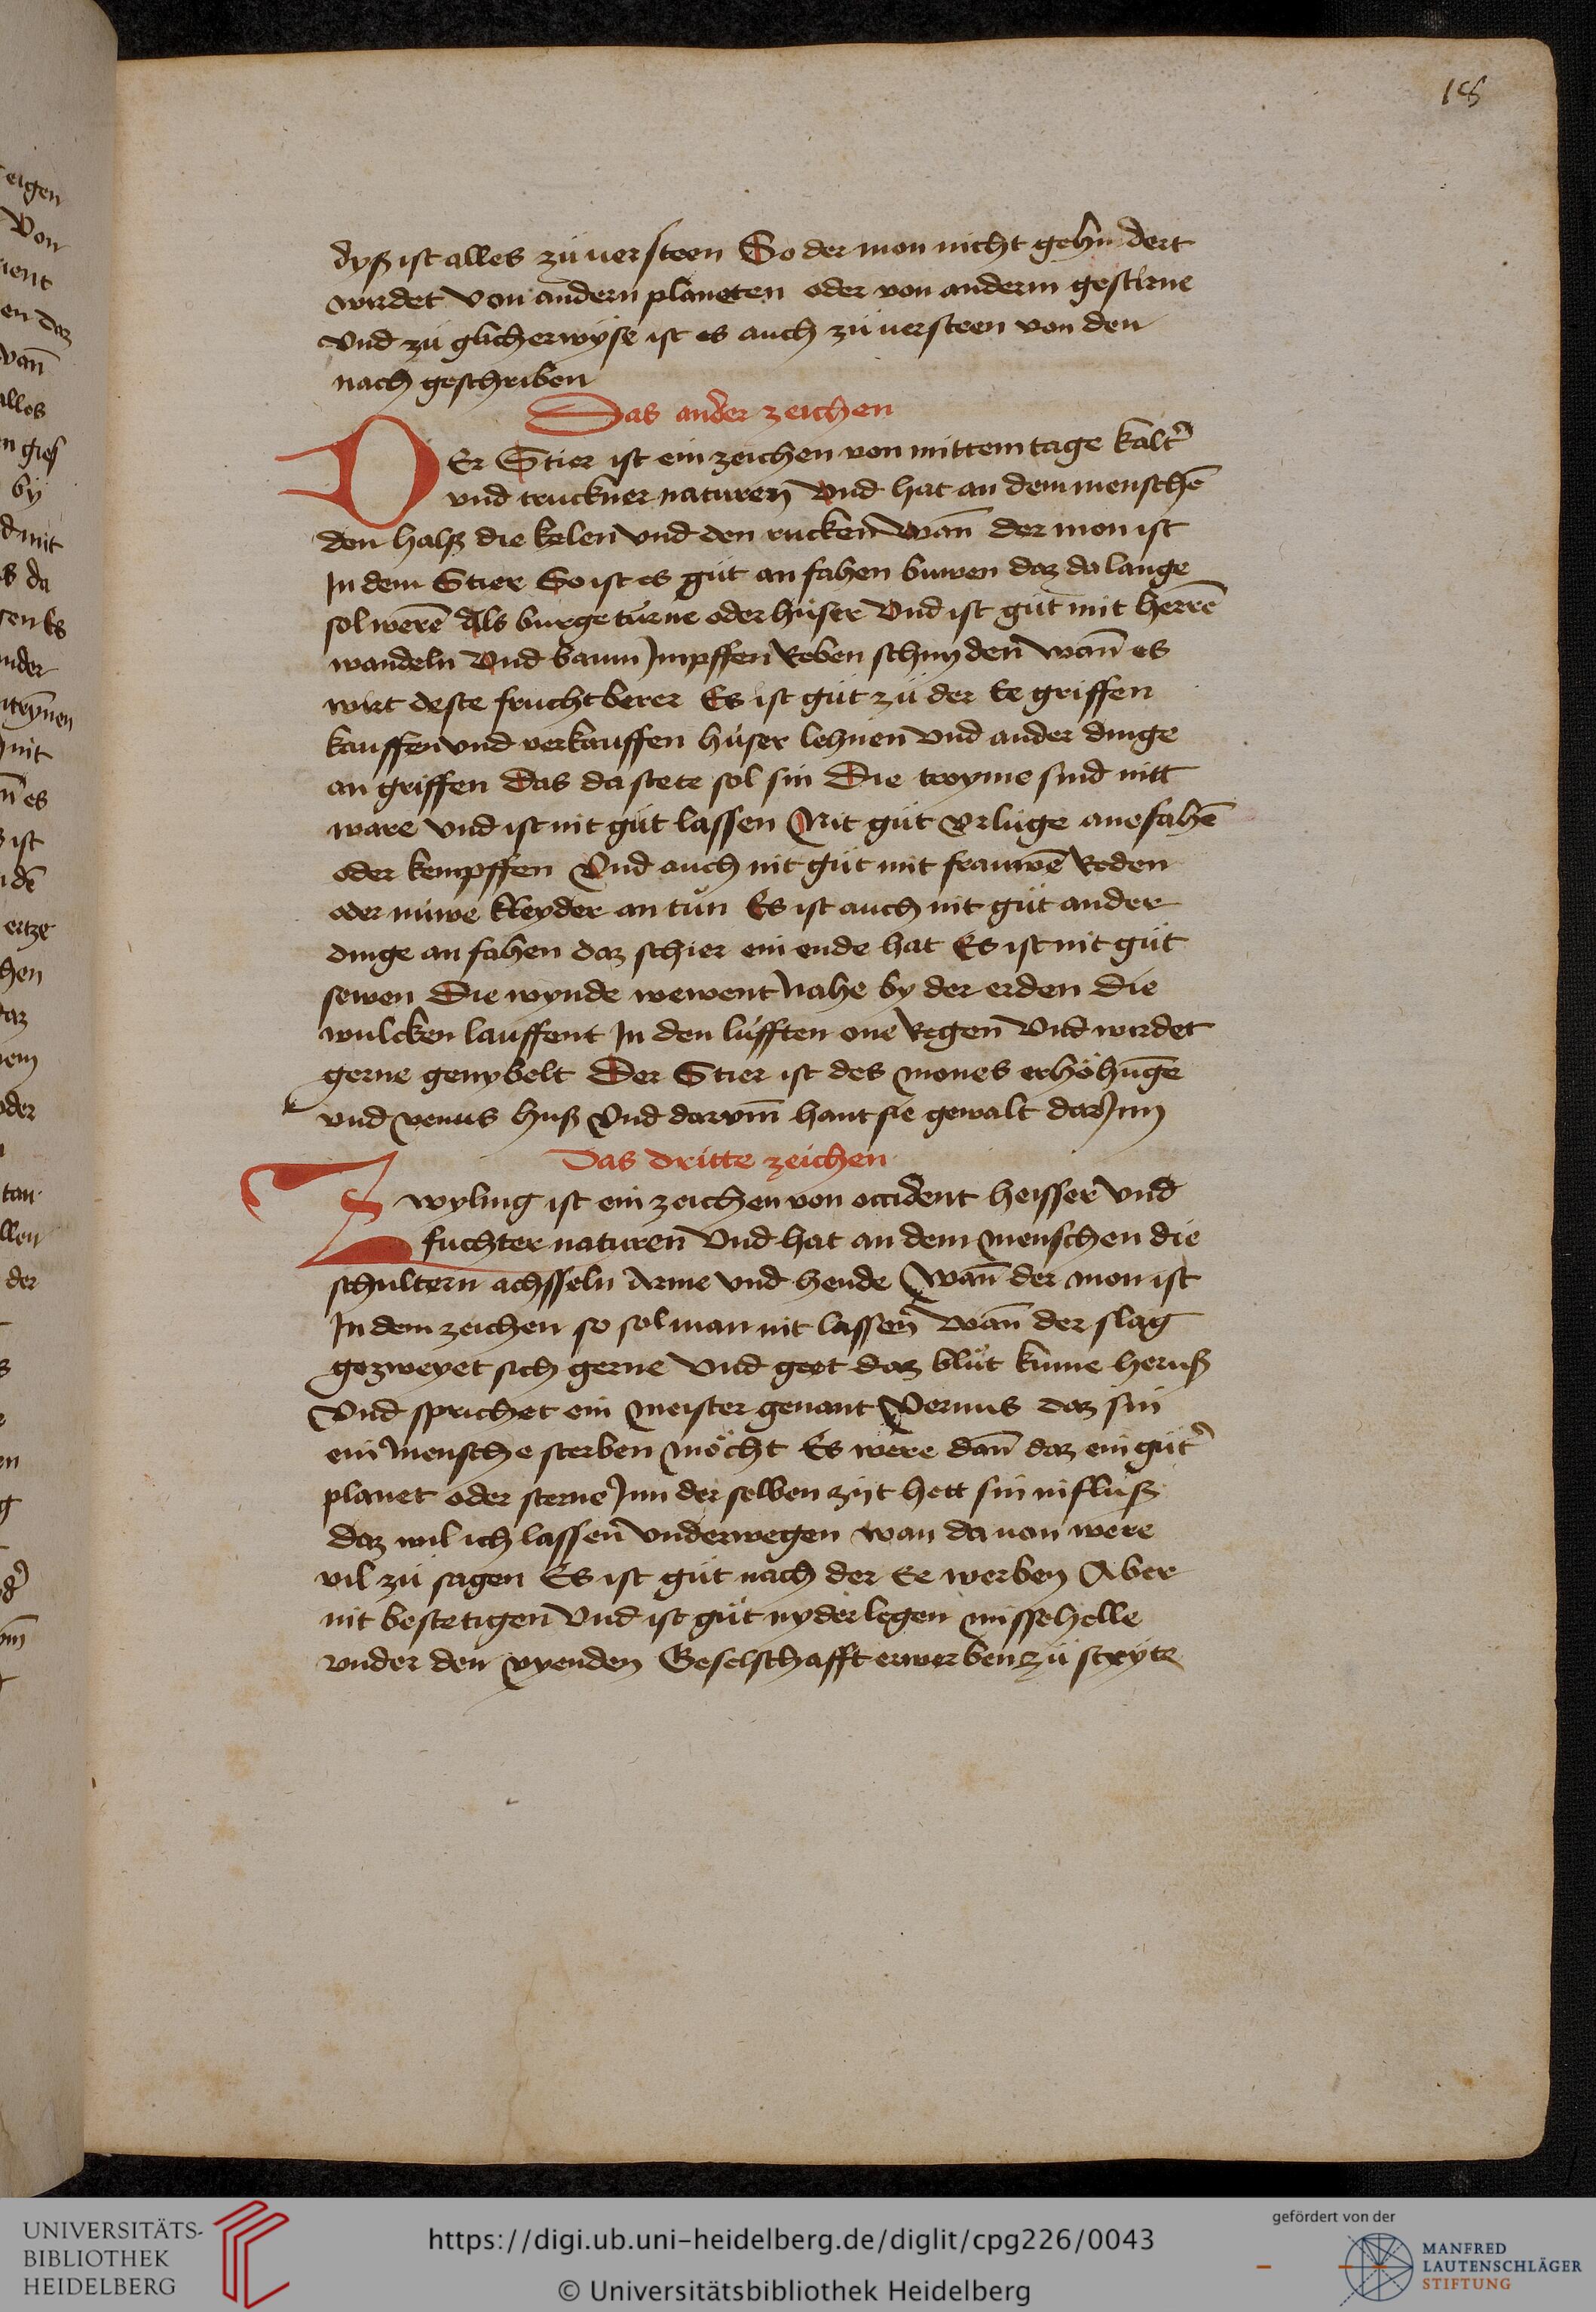 18
dyß ist alles zü uersteen So der mon nicht gehindert
wirdet von andern planeten oder von anderm gestirne
Vnd zü glicherwyse ist es auch zü uersteen von den
nach geschriben
Das ander zeichen
DEr Stier ist ein zeichen von mittemtage kalt̉
vnd truckner naturen Vnd hat an dem menschē
den halß die kelen vnd den rucken Wan̄ der mon ist
In dem Stier So ist es güt an fahen buwen daz da lange
sol werē Als burge türne oder hüser Vnd ist güt mit herrē
wandeln Vnd baum Impffen Reben schnyden wan̄ es
wirt deste fruchtberer Es ist güt zü der Ee griffen
kauffen vnd verkauffen hüser lehnen vnd ander dinge
an griffen Das da stete sol sin Die troyme sind nitt
ware vnd ist nit güt lassen Nit güt Vrlüge anefahē
oder kempffen Vnd auch nit güt mit frauwē Reden
oder nüwe kleyder an tün Es ist auch nit güt ander
dinge an fahen daz schier ein ende hat Es ist nit güt
sewen Die wynde wewent nahe by der erden Die
wulcken lauffent In den lüfften one Regen Vnd wirdet
gerne genybelt Der Stier ist des mones erhöhunge
vnd venus huß Vnd darvm̄ hant sie gewalt dar Inn
Das dritte zeichen
Zwyling ist ein zeichen von occident heisser vnd
fuchter naturen Vnd hat an dem menschen die
schultern achsseln Arme vnd hende Wan̄ der mon ist
In dem zeichen so sol man nit lassen Wan̄ der slag
gezweyet sich gerne Vnd geet daz blüt kume heruß
Vnd sprichet ein meister genant daz sin
ein mensche sterben möcht Es were dan̄ daz ein güt̉
planet oder sterne Inn der selben zijt hett sin influß
daz wil ich lassen vnderwegen wan da uon were
vil zü sagen Es ist güt nach der Ee werben Aber
nit bestetigen Vnd ist güt nyder legen missehelle
vnder den vyenden Geselschafft erwerben zü stryte
eigen
Von
en daz
van̄
alles
by
ist
ertze
hen
der
UNIVERSITÄTS-
BIBLIOTHEK
HEIDELBERG
https://digi.ub.uni-heidelberg.de/diglit/cpg226/0043
© Universitätsbibliothek Heidelberg
gefördert von der
MANFRED
LAUTENSCHLÄGER
STIFTUNG